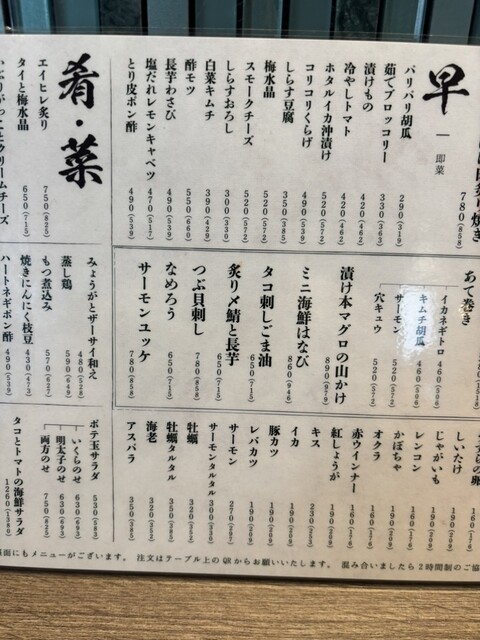 早
即菜
り焼き 780(858)
パリパリ胡瓜 290(319)
茹でブロッコリー 330(363)
漬けもの 420(462)
冷やしトマト 420(462)
ホタルイカ沖漬け 520(572)
コリコリくらげ 490(539)
しらす豆腐 350(385)
梅水晶 520(572)
スモークチーズ 520(572)
しらすおろし 300(330)
白菜キムチ 390(429)
酢モツ 550(660)
長芋わさび 490(539)
塩だれレモンキャベツ 470(517)
とり皮ポン酢 490(539)
肴・菜
エイヒレ炙り 750(825)
タイと梅水晶 650(715)
いぶりがっことクリームチーズ
あて巻き
イカネギトロ 460(506)
キムチ胡瓜 460(506)
サーモン 520(572)
穴キュウ 520(572)
漬け本マグロの山かけ 890(979)
ミニ海鮮はなび 860(946)
タコ刺しごま油 650(715)
炙り〆鯖と長芋 650(715)
つぶ貝刺し 780(858)
なめろう 650(715)
サーモンユッケ 780(858)
みょうがとザーサイ和え 480(528)
蒸し鶏 590(649)
もつ煮込み 570(627)
焼きにんにく枝豆 430(473)
ハートネギポン酢 490(539)
うずらの卵
しいたけ 160(176)
じゃがいも 190(209)
レンコン 190(209)
かぼちゃ 190(209)
オクラ 160(176)
赤ウインナー 160(176)
紅しょうが 190(209)
キス 230(253)
イカ 190(209)
豚カツ 190(209)
レバカツ 190(209)
サーモン 270(297)
サーモンタルタル 300(330)
牡蠣 320(352)
牡蠣タルタル 350(385)
海老 320(352)
アスパラ 350(385)
ポテ玉サラダ 530(583)
いくらのせ 630(693)
明太子のせ 630(693)
両方のせ 750(825)
タコとトマトの海鮮サラダ 1260(1380)
面にもメニューがございます。 注文はテーブル上のQRからお願いいたします。 混み合いましたら2時間制のご協